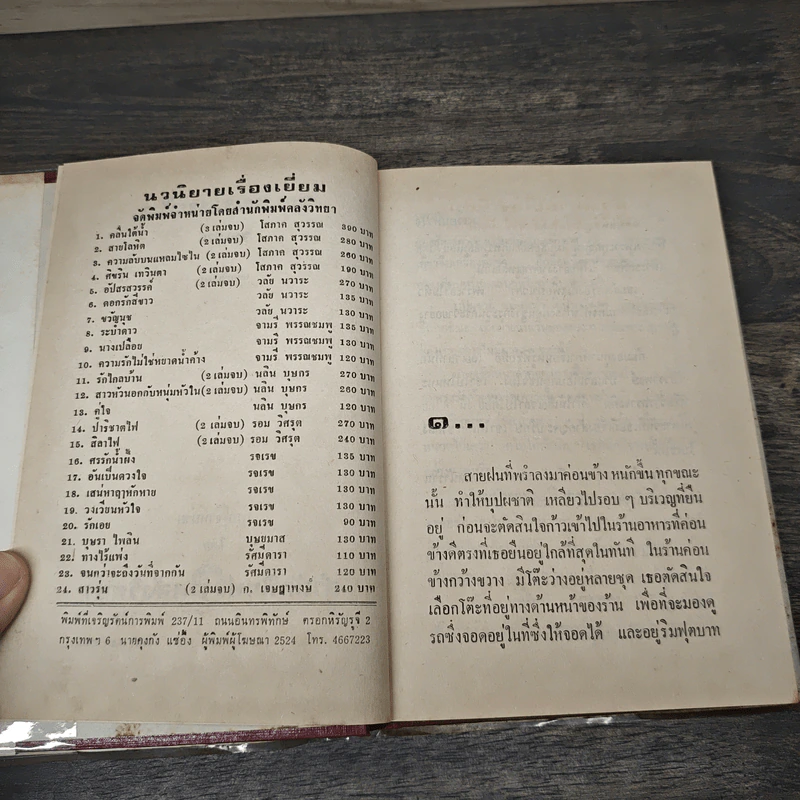 นวนิยายเรื่องเยี่ยม
จัดพิมพ์จำหน่ายโดยสำนักพิมพ์คลังวิทยา
1. คลื่นใต้น้ำ (3 เล่มจบ) โสภาค สุวรรณ 390 บาท
2. สายโลหิต (2 เล่มจบ) โสภาค สุวรรณ 280 บาท
3. ความลับบนแหลมไซไน (2 เล่มจบ) โสภาค สุวรรณ 260 บาท
4. ศิขริน เทวินตา (2 เล่มจบ) โสภาค สุวรรณ 190 บาท
5. อัปสรสวรรค์ (2 เล่มจบ) วลัย นวาระ 270 บาท
6. ดอกรักสีขาว วลัย นวาระ 135 บาท
7. ขวัญนุช วลัย นวาระ 130 บาท
8. ระบำดาว จามรี พรรณชมพู 135 บาท
9. นางเปลือย จามรี พรรณชมพู 130 บาท
10. ความรักไม่ใช่หยาดน้ำค้าง จามรี พรรณชมพู 120 บาท
11. รักไกลบ้าน (2 เล่มจบ) นลิน บุษกร 270 บาท
12. สาวหัวนอกกับหนุ่มหัวใน (2 เล่มจบ) นลิน บุษกร 260 บาท
13. คู่ใจ นลิน บุษกร 120 บาท
14. ปาริชาตไฟ (2 เล่มจบ) รอม วิศรุต 270 บาท
15. สิลาไฟ (2 เล่มจบ) รอม วิศรุต 240 บาท
16. ศรรักน้ำผึ้ง รจเรข 135 บาท
17. อันเป็นดวงใจ รจเรข 130 บาท
18. เสน่หาฤาหักหาย รจเรข 130 บาท
19. วงเวียนหัวใจ รจเรข 130 บาท
20. รักเอย รจเรข 90 บาท
21. บุษรา ไพลิน บุษยมาส 130 บาท
22. ทางไร้แพ่ง รัศมีดารา 110 บาท
23. จนกว่าจะถึงวันที่จากกัน รัศมีดารา 120 บาท
24. สาวรุ่น (2 เล่มจบ) ก. เจษฎาพงษ์ 240 บาท
พิมพ์ที่เจริญรัตน์การพิมพ์ 237/11 ถนนอินทรพิทักษ์ ตรอกหิรัญรูจี 2
กรุงเทพฯ 6 นายคุงกัง แซ่อึ้ง ผู้พิมพ์ผู้โฆษณา 2524 โทร. 4667223
๑...
สายฝนที่พรำลงมาค่อนข้างหนักขึ้นทุกขณะ
นั้น ทำให้บุปผชาติ เหลียวไปรอบๆ บริเวณที่ยืน
อยู่ ก่อนจะตัดสินใจก้าวเข้าไปในร้านอาหารที่ค่อน
ข้างดีตรงที่เธอยืนอยู่ใกล้ที่สุดในทันที ในร้านค่อน
ข้างกว้างขวาง มีโต๊ะว่างอยู่หลายชุด เธอตัดสินใจ
เลือกโต๊ะที่อยู่ทางด้านหน้าของร้าน เพื่อที่จะมองดู
รถซึ่งจอดอยู่ในที่ซึ่งให้จอดได้ และอยู่ริมฟุตบาท